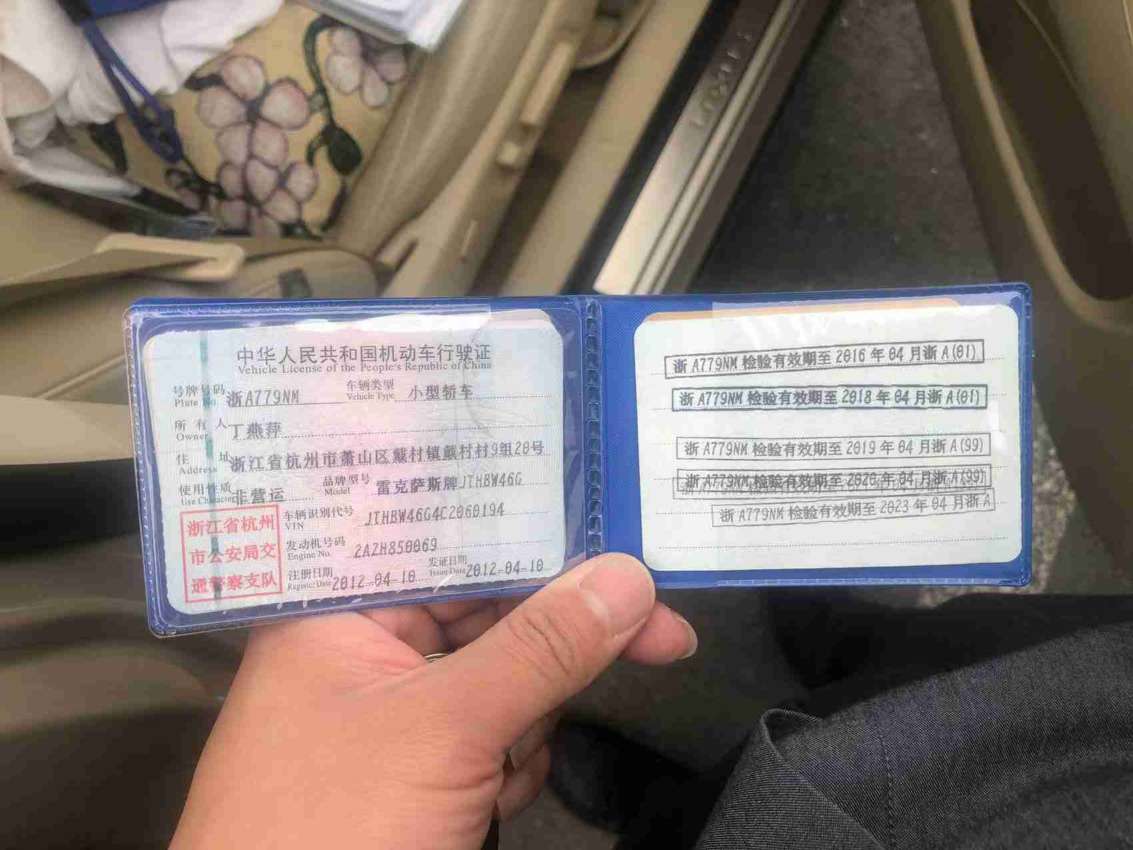 LEXUS
中华人民共和国机动车行驶证
Vehicle License of the People's Republic of China
号牌号码 Plate No. 浙A779NM 车辆类型 Vehicle Type 小型轿车
所有人 Owner 丁燕萍
住址 Address 浙江省杭州市萧山区戴村镇戴村村9组20号
使用性质 Use Character 非营运 品牌型号 Model 雷克萨斯牌JTHBW46G
车辆识别代号 VIN JTHBW46G4C2060194
发动机号码 Engine No. 2AZH850069
注册日期 Register Date 2012-04-10 发证日期 Issue Date 2012-04-10
浙江省杭州
市公安局交
通警察支队
浙A779NM检验有效期至2016年04月浙A(01)
浙A779NM检验有效期至2018年04月浙A(01)
浙A779NM检验有效期至2019年04月浙A(99)
浙A779NM检验有效期至2020年04月浙A(99)
浙A779NM检验有效期至2023年04月浙A